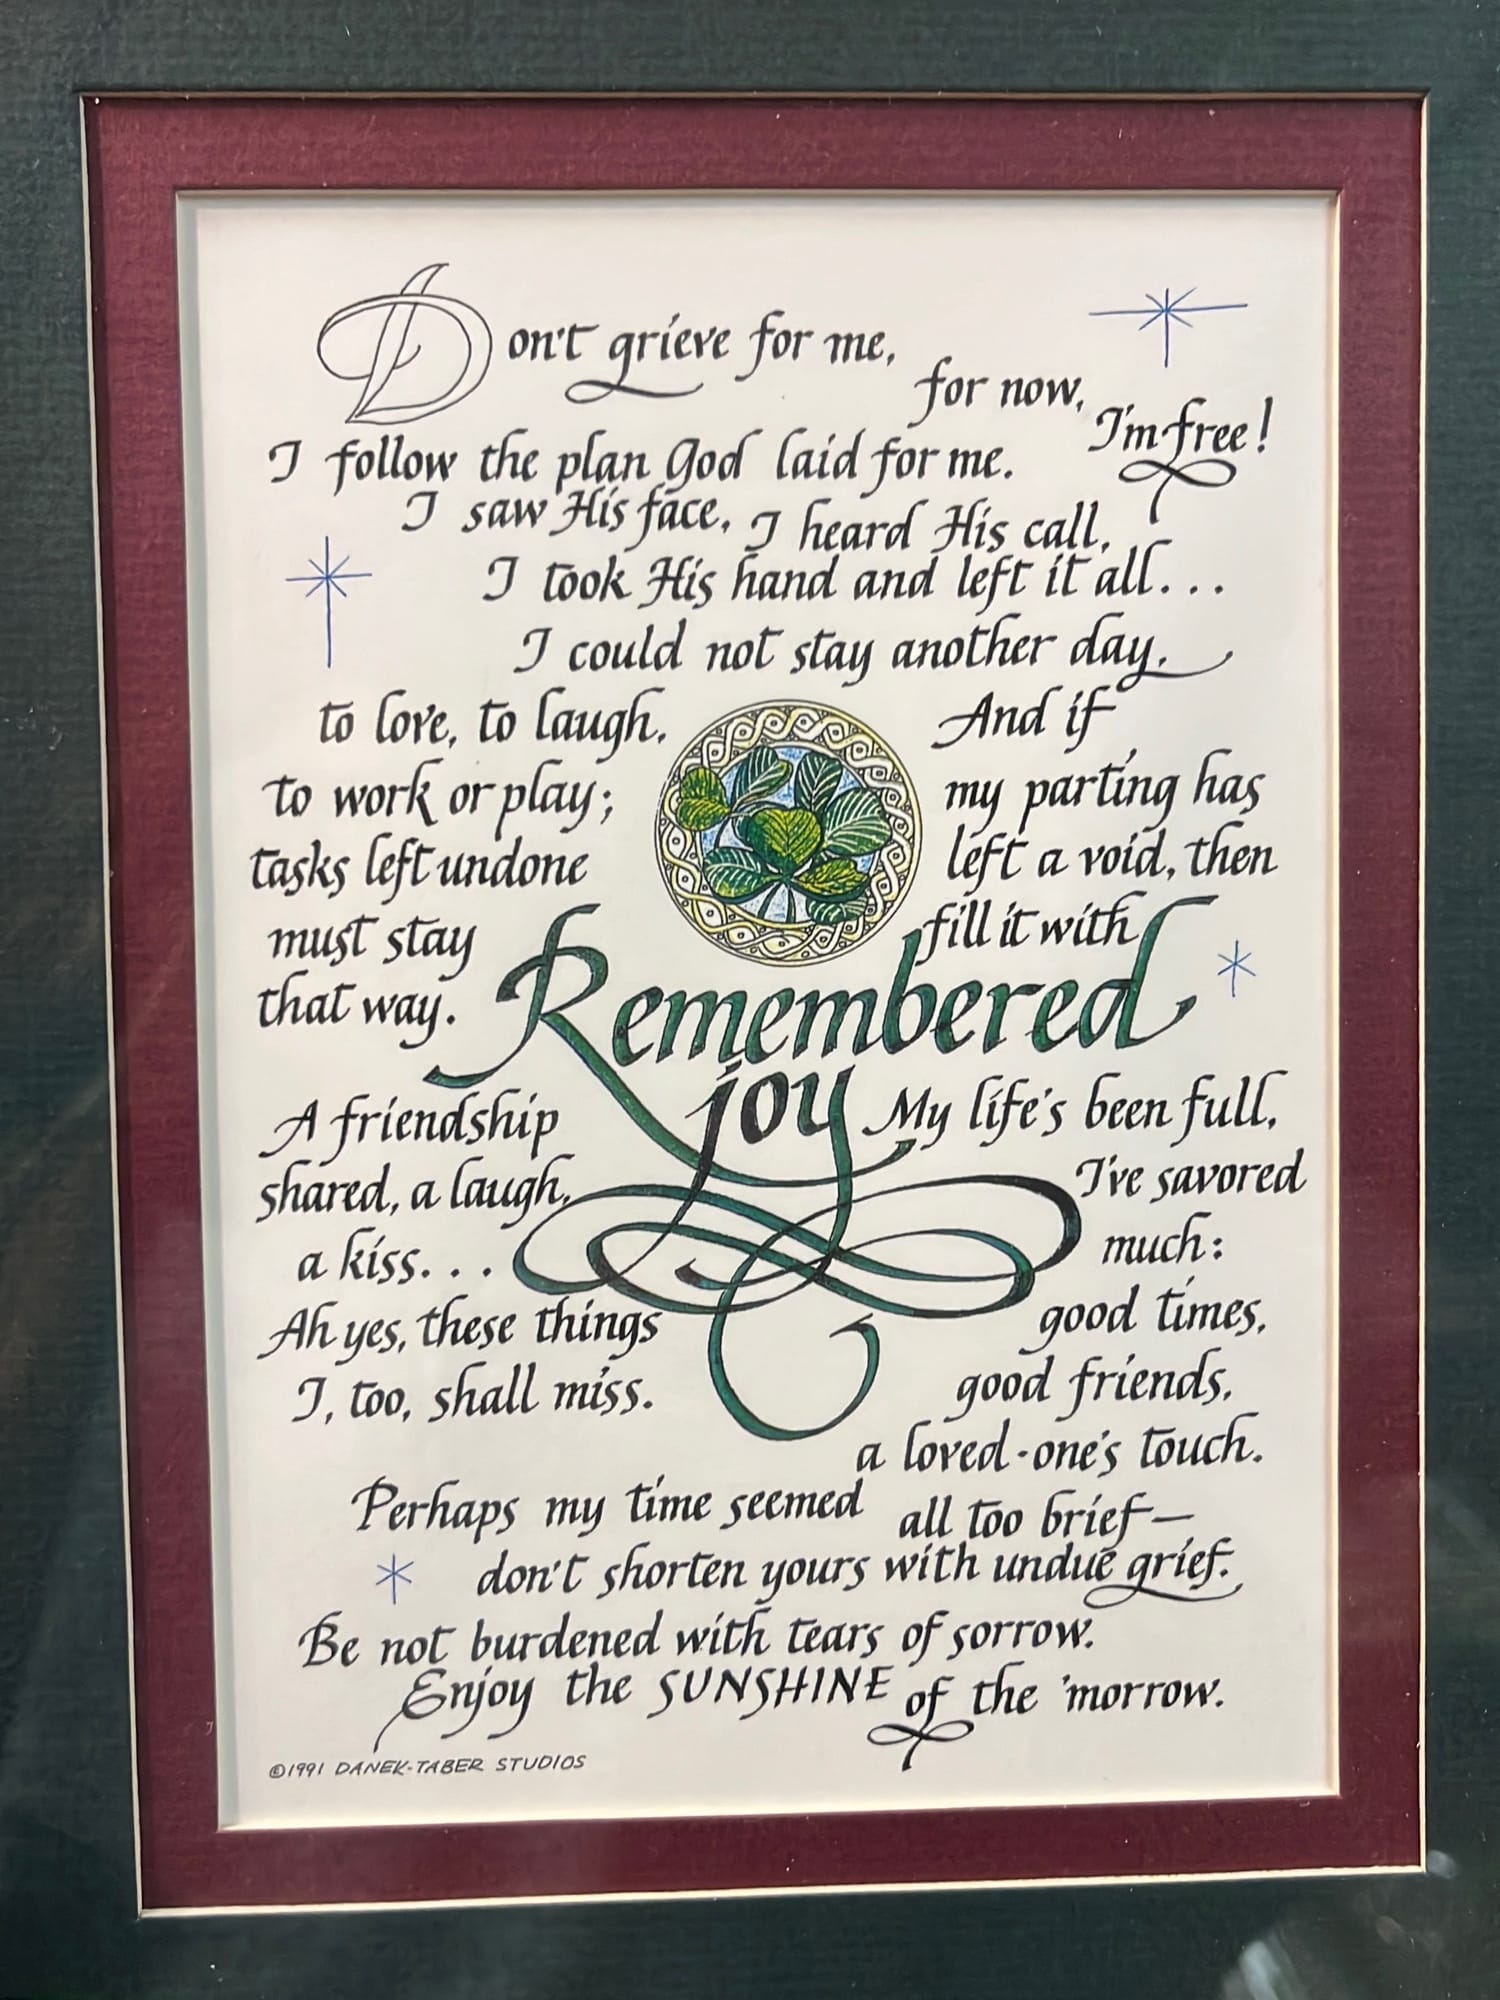 Don't grieve for me,
for now,
I'm free!
I follow the plan God laid for me.
I saw His face, I heard His call,
I took His hand and left it all...
I could not stay another day,
to love, to laugh,
to work or play;
tasks left undone
must stay
that way.
And if
my parting has
left a void, then
fill it with
Remembered
joy
A friendship
shared, a laugh,
a kiss...
Ah yes, these things
I, too, shall miss.
My life's been full,
I've savored
much:
good times,
good friends,
a loved-one's touch.
Perhaps my time seemed all too brief—
don't shorten yours with undue grief.
Be not burdened with tears of sorrow.
Enjoy the SUNSHINE of the 'morrow.
©1991 DANEK-TABER STUDIOS